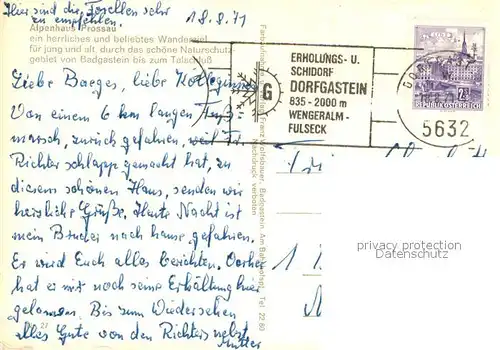 Hier sind die Forellen sehr
zu empfehlen.
18.8.71
Alpenhaus Prossau
ein herrliches und beliebtes Wanderziel
für jung und alt, durch das schöne Naturschutz-
gebiet von Badgastein bis zum Talschluß
Liebe Baeges, liebe Kolleginnen
Von einem 6 km langen Fuß-
marsch, zurück gefahren, weil Fr.
Richter schlapp gemacht hat, zu
diesem schönen Haus, senden wir
herzliche Grüße. Heute Nacht ist
mein Bruder nach hause gefahren.
Er wird Euch alles berichten. Vorher
hat er mir noch seine Erhaltung hier
gelassen. Bis zum Wiedersehen
alles Gute von den Richters nebst
Mutter
Franz Wolfsbauer, Badgastein, Am Bahnhofspl., Tel. 22 80
Nachdruck verboten
G
ERHOLUNGS- U.
SCHIDORF
DORFGASTEIN
835-2000 m
WENGERALM-
FULSECK
REPUBLIK ÖSTERREICH
5632
privacy protection
Datenschutz